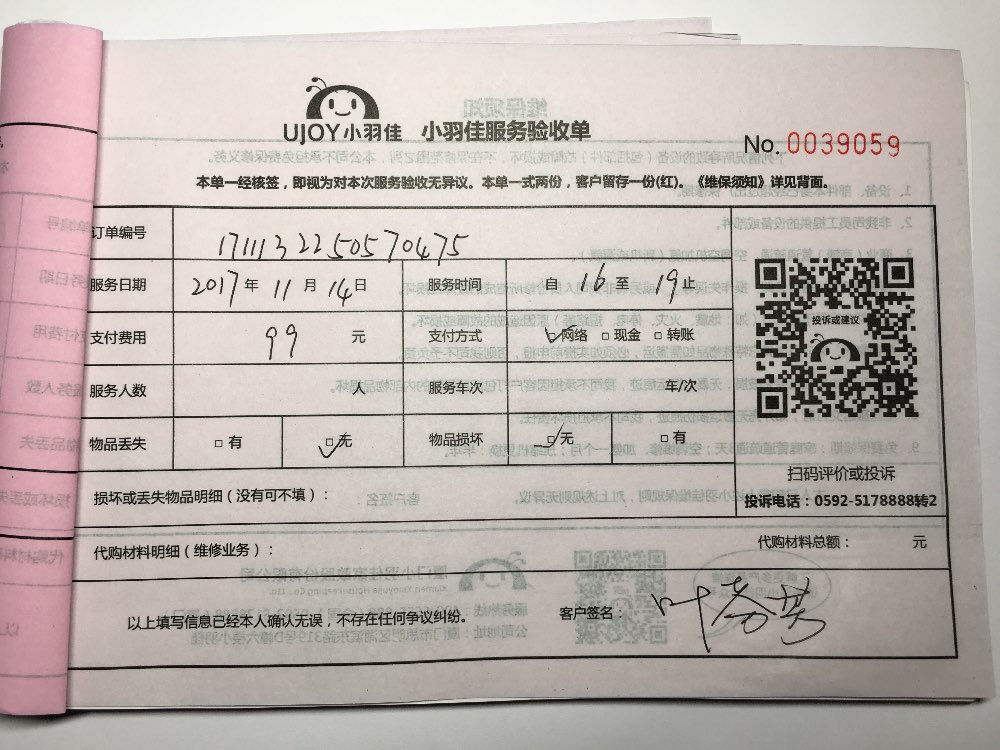 UJOY小羽佳 小羽佳服务验收单
No. 0039059
本单一经核签，即视为对本次服务验收无异议。本单一式两份，客户留存一份(红)。《维保须知》详见背面。
订单编号 171113225057 0475
服务日期 2017年 11月 14日 服务时间 自 16 至 19 止
投诉或建议
支付费用 99 元 支付方式 ☑网络 □现金 □转账
服务人数 人 服务车次 车/次
物品丢失 □有 ☑无 物品损坏 ☑无 □有
扫码评价或投诉
损坏或丢失物品明细（没有可不填）：
投诉电话：0592-5178888转2
代购材料明细（维修业务）： 代购材料总额： 元
以上填写信息已经本人确认无误，不存在任何争议纠纷。 客户签名：